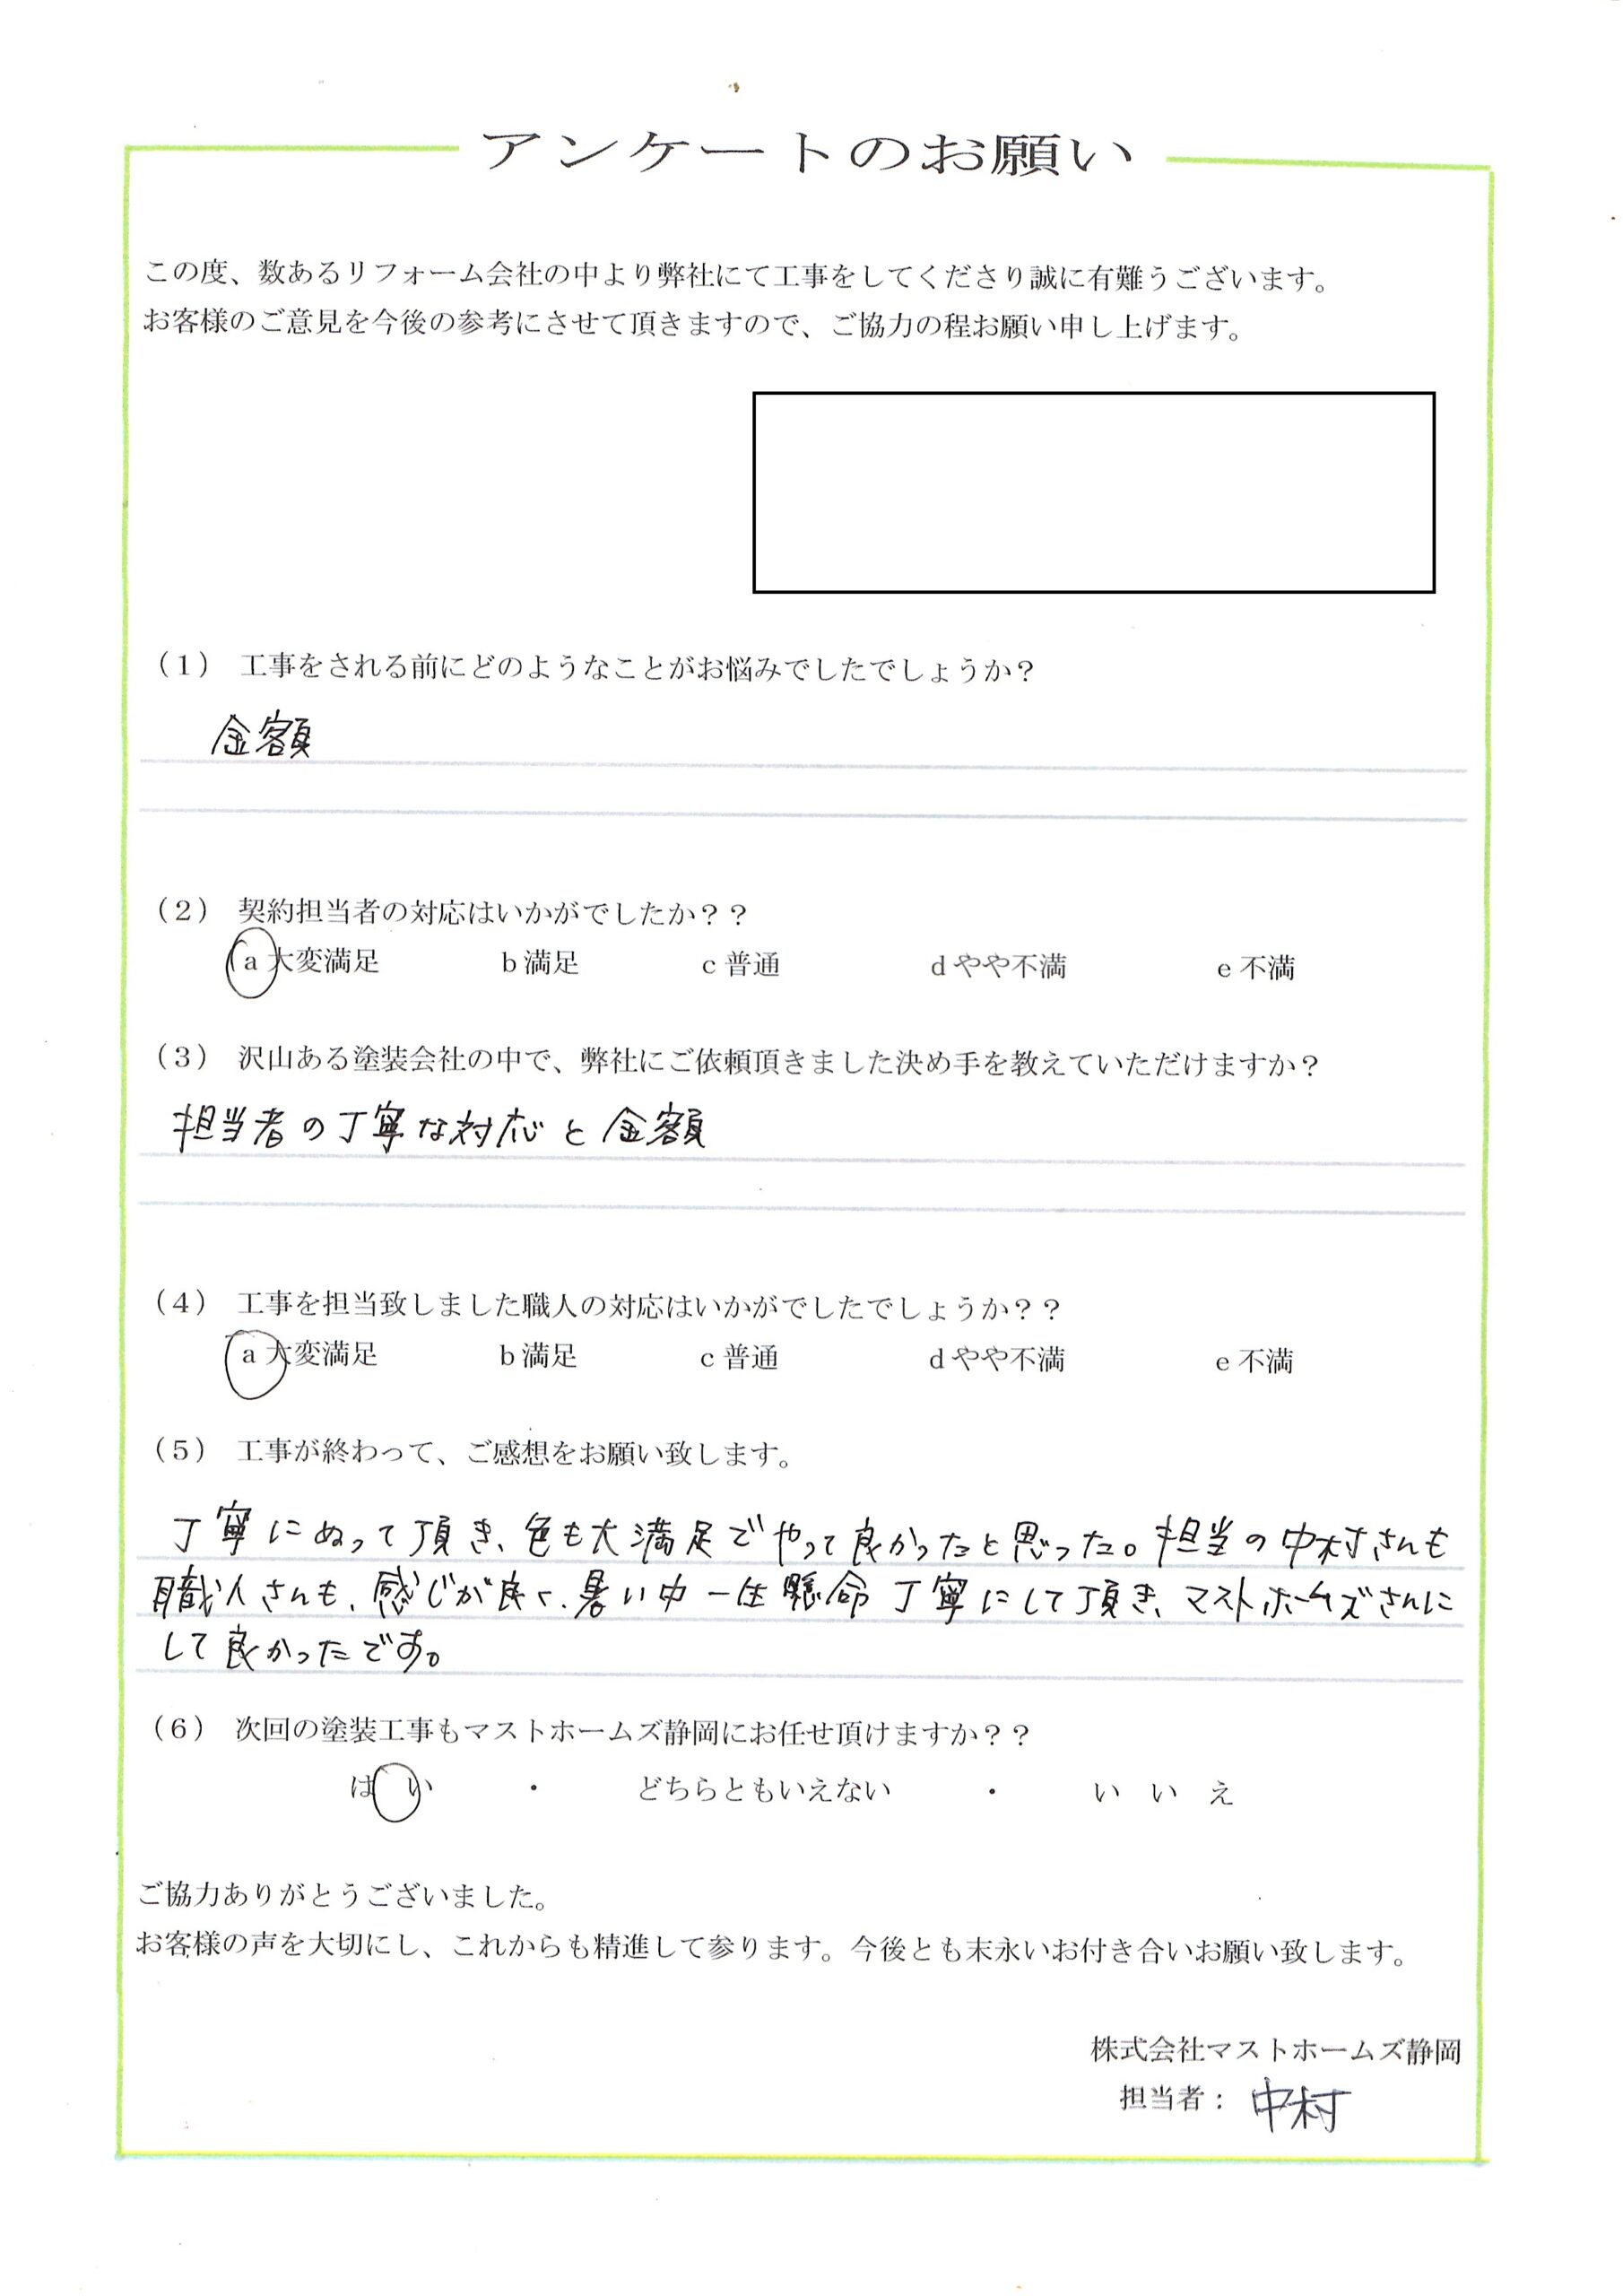 アンケートのお願い
この度、数あるリフォーム会社の中より弊社にて工事をしてくださり誠に有難うございます。
お客様のご意見を今後の参考にさせて頂きますので、ご協力の程お願い申し上げます。
（1） 工事をされる前にどのようなことがお悩みでしたでしょうか？
金額
（2） 契約担当者の対応はいかがでしたか？？
a 大変満足 b 満足 c 普通 d やや不満 e 不満
（3） 沢山ある塗装会社の中で、弊社にご依頼頂きました決め手を教えていただけますか？
担当者の丁寧な対応と金額
（4） 工事を担当致しました職人の対応はいかがでしたでしょうか？？
a 大変満足 b 満足 c 普通 d やや不満 e 不満
（5） 工事が終わって、ご感想をお願い致します。
丁寧にぬって頂き、色も大満足でやって良かったと思った。担当の中村さんも
職人さんも、感じが良く、暑い中一生懸命丁寧にして頂き、マストホームズさんに
して良かったです。
（6） 次回の塗装工事もマストホームズ静岡にお任せ頂けますか？？
はい ・ どちらともいえない ・ いいえ
ご協力ありがとうございました。
お客様の声を大切にし、これからも精進して参ります。今後とも末永いお付き合いお願い致します。
株式会社マストホームズ静岡
担当者： 中村